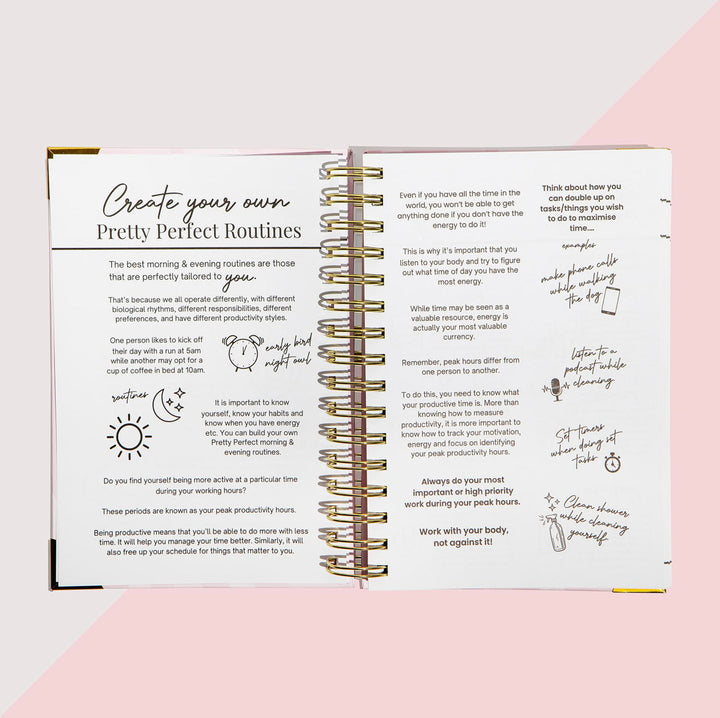 Create your own
Pretty Perfect Routines
The best morning & evening routines are those
that are perfectly tailored to you.
That's because we all operate differently, with different
biological rhythms, different responsibilities, different
preferences, and have different productivity styles.
One person likes to kick off
their day with a run at 5am
while another may opt for a
cup of coffee in bed at 10am.
early bird
night owl
routines
It is important to know
yourself, know your habits and
know when you have energy
etc. You can build your own
Pretty Perfect morning &
evening routines.
Do you find yourself being more active at a particular time
during your working hours?
These periods are known as your peak productivity hours.
Being productive means that you'll be able to do more with less
time. It will help you manage your time better. Similarly, it will
also free up your schedule for things that matter to you.
Even if you have all the time in the
world, you won't be able to get
anything done if you don't have the
energy to do it!
This is why it's important that you
listen to your body and try to figure
out what time of day you have the
most energy.
While time may be seen as a
valuable resource, energy is
actually your most valuable
currency.
Remember, peak hours differ from
one person to another.
To do this, you need to know what
your productive time is. More than
knowing how to measure
productivity, it is more important to
know how to track your motivation,
energy and focus on identifying
your peak productivity hours.
Always do your most
important or high priority
work during your peak hours.
Work with your body,
not against it!
Think about how you
can double up on
tasks/things you wish
to do to maximise
time....
examples
make phone calls
while walking
the dog
listen to a
podcast while
cleaning
Set timers
when doing set
tasks
Clean shower
while cleaning
yourself